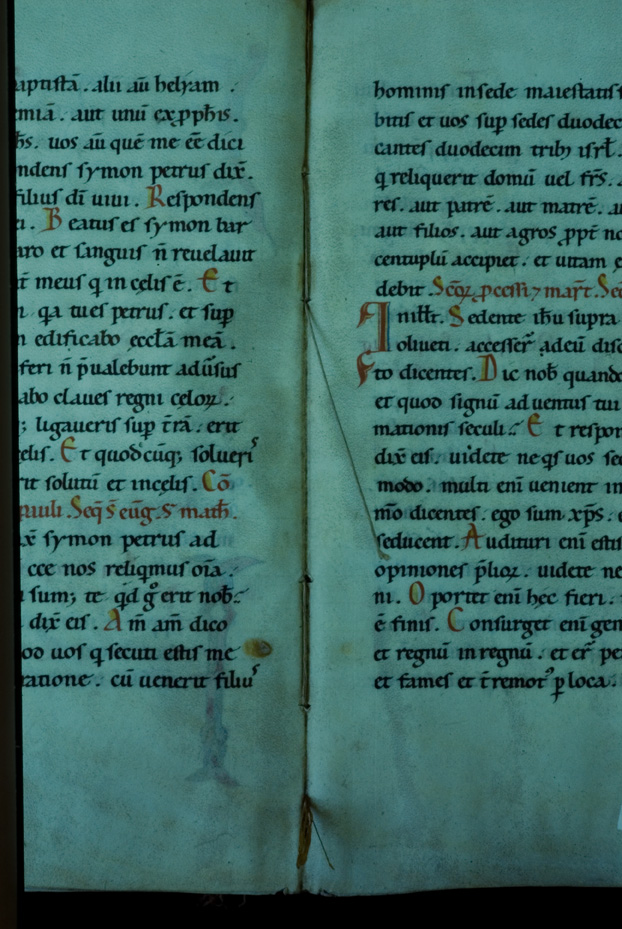 aptistā. alii aū helyam.
emiā. aut unū ex pphis.
his. uos aū quē me eē dici
ndens symon petrus dix̄.
filius dī uiui. Respondens
ei. Beatus es symon bar
aro et sanguis n̄ reuelauit
meus q in celis ē. Et
qa tu es petrus. et sup
edificabo eccl̄a meā.
feri n̄ p̄ualebunt aduersus
abo claues regni celoꝝ.
ligaueris sup t̄rā. erit
celis. Et quodcūq; solueris
rit solutū et in celis. Cō
pauli. Seq̄ s̄ eūg. s̄ math̄.
dix̄ symon petrus ad
cce nos reliqmus oīa.
sum; te. qd g̊ erit nob;
dix̄ eis. Am̄ am̄ dico
od uos q secuti estis me
ratione. cū uenerit filius
hominis in sede maiestatis
bitis et uos sup sedes duodec
cantes duodecim trib; isrl̄.
q reliquerit domū uel fr̄s.
res. aut patrē. aut matrē.
aut filios. aut agros. ꝓpt̄ no
centuplū accipiet. et uitam e
debit. Sc̄oꝝ ꝓcessi ⁊ mar̄t. Sc̄
In ill̄t. Sedente ih̄u supra
oliueti. accesser̄ ad eū disc
to dicentes. Dic nob̄ quando
et quod signū aduentus tui
mationis seculi. Et respon
dix̄ eis. uidete ne qs uos se
modo. multi enī uenient in
m̄o dicentes. ego sum xp̄s.
seducent. Audituri enī estis
opiniones p̄lioꝝ. uidete ne
ni. Oportet enī hec fieri.
ē finis. Consurget enī gen
et regnū in regnū. et er̄
et fames et t̄remot᷒ p loca.